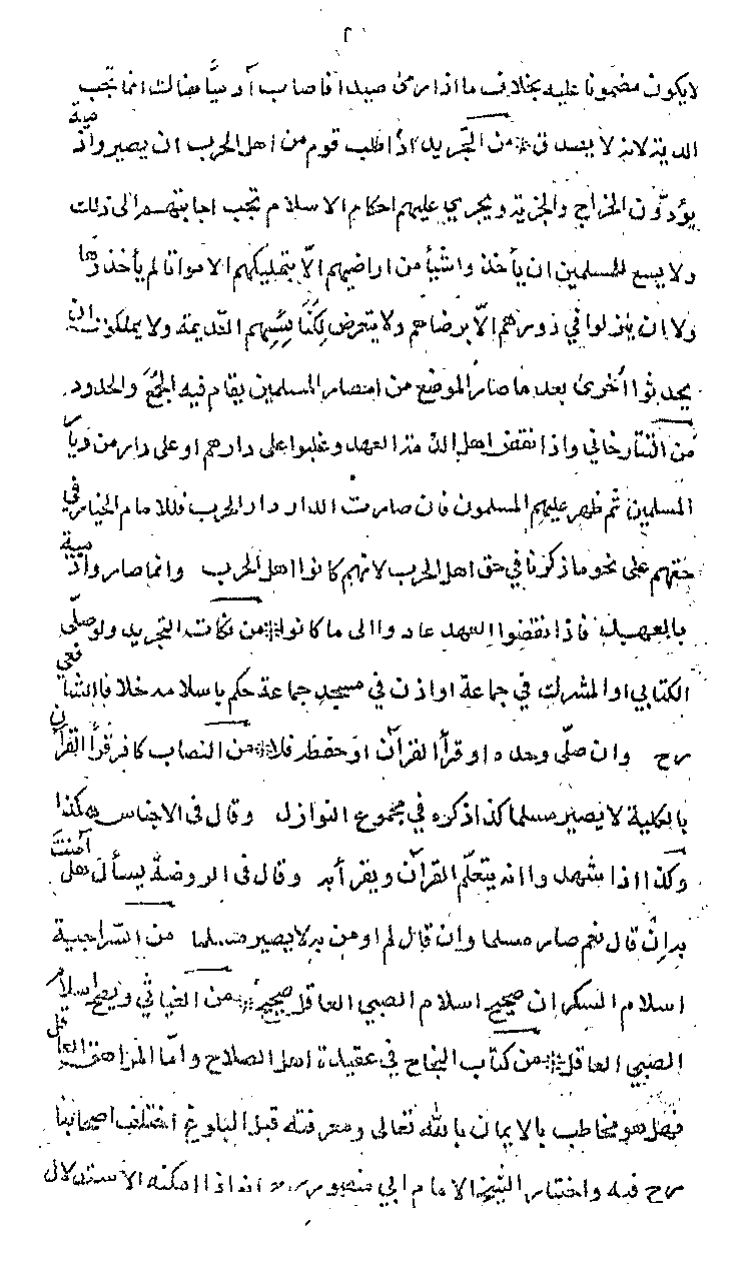 ٢
لا يكون مضمونا عليه بخلاف ما اذا رمى صيدا فاصاب آدميا هنالك انما تجب
الدية لانه لا يتصدق من التجريد اذا طلب قوم من اهل الحرب ان يصيروا ذمية
يؤدّون الخراج والجزية ويجري عليهم احكام الاسلام تجب اجابتهم الى ذلك
ولا يسع للمسلمين ان يأخذوا شيأ من اراضيهم الّا بتمليكهم الا مواتا لم يأخذوها
ولا ان ينزلوا في دورهم الّا برضاهم ولا يتعرض لكنائسهم القديمة ولا يملكون ان
يحدثوا أخرى بعد ما صار الموضع من امصار المسلمين يقام فيه الجُمَع والحدود
من التتارخاني واذا نقض اهل الذمة العهد وغلبوا على دارهم او على دار من ديار
المسلمين ثم ظهر عليهم المسلمون فان صارت الدار دار الحرب فللامام الخيار في
حقهم على نحو ما ذكرنا في حق اهل الحرب لانهم كانوا اهل الحرب وانما صاروا ذمية
بالعهد فاذا نقضوا العهد عادوا الى ما كانوا من نكات التجريد ولو صلّى
الكتابي او المشرك في جماعة او اذن في مسجد جماعة حكم باسلامه خلافا للشافعي
رح وان صلّى وحده او قرأ القرآن او حفظه فلا من النصاب كافر قرأ القرآن
بالكلية لا يصير مسلما كذا ذكره في مجموع النوازل وقال في الاجناس هكذا
وكذا اذا شهدوا انه يتعلّم القرآن ويقرأ به وقال في الروضة يسأل هل آمنت
به ان قال نعم صار مسلما وان قال لم اومن به لا يصير مسلما من السّراجية
اسلام السكران صحيح اسلام الصبي العاقل صحيح من الغياثي ويصح اسلام
الصبي العاقل من كتاب النجاح في عقيدة اهل الصلاح وامّا المراهق العاقل
فهل هو مخاطب بالايمان بالله تعالى ومعرفته قبل البلوغ اختلف اصحابنا
رح فيه واختار الشيخ الامام ابي منصور رح انه اذا امكنه الاستدلال